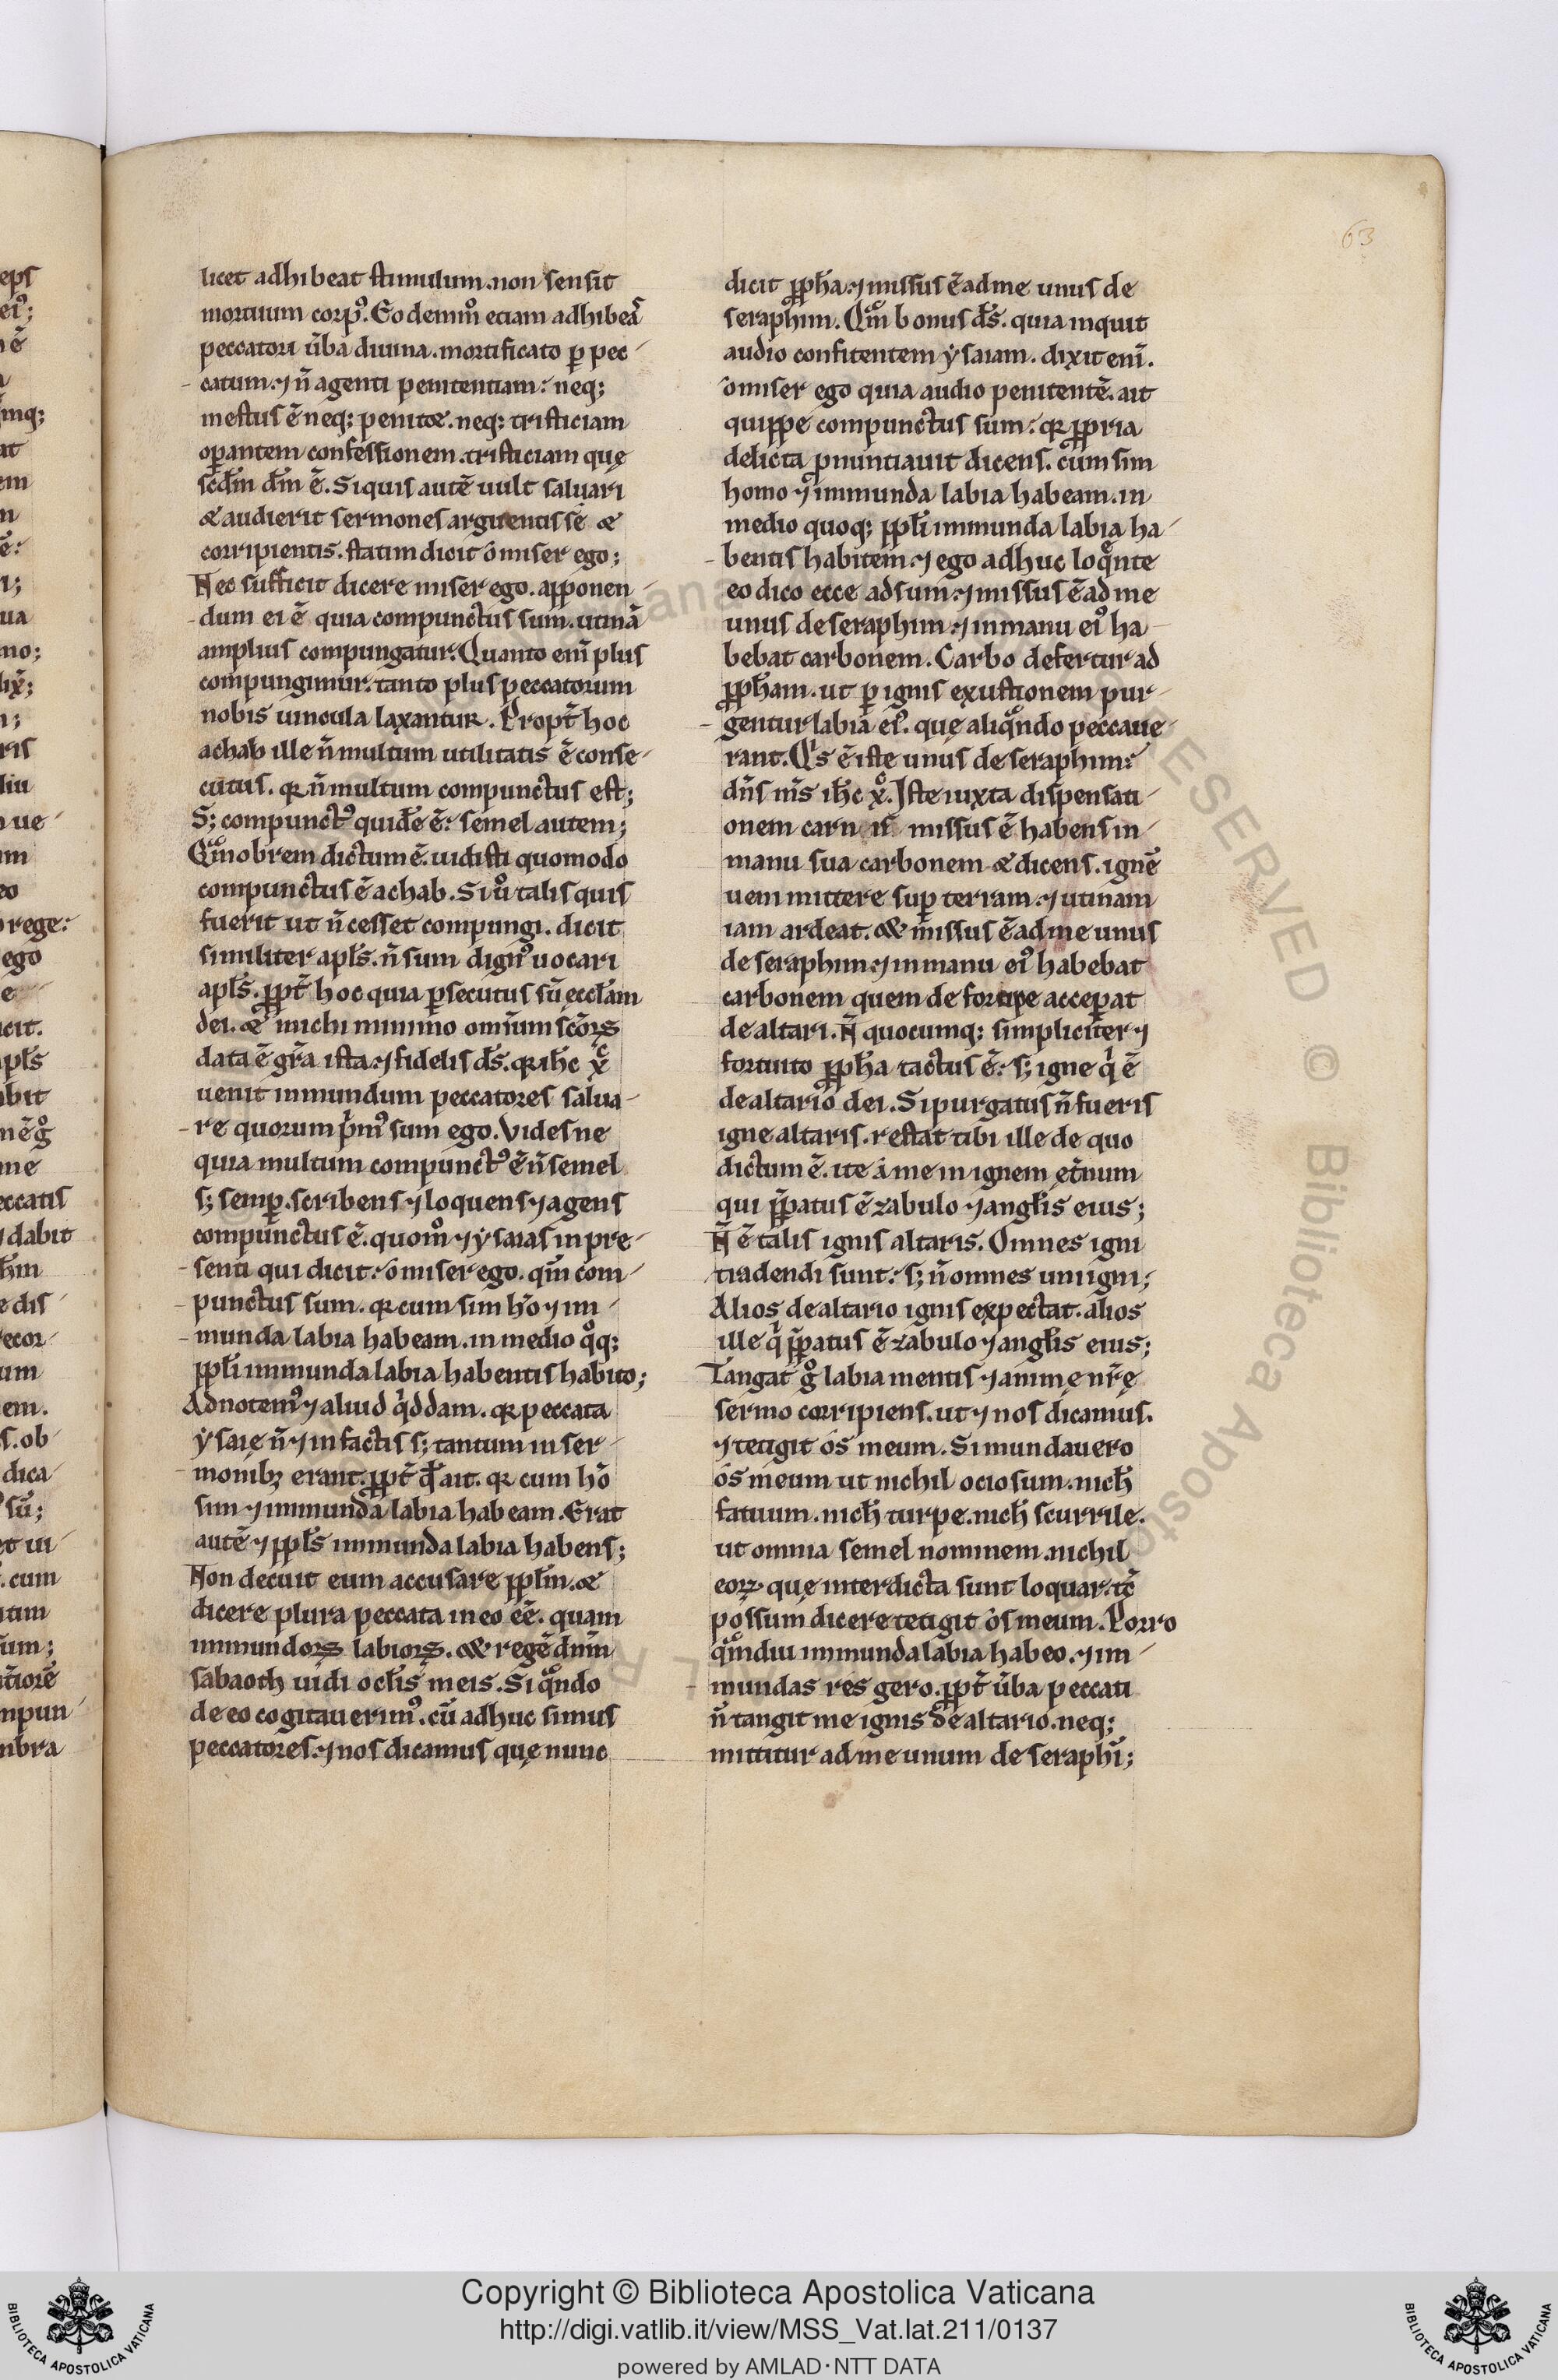 63
licet adhibeat stimulum. non sensit
mortuum corpꝰ. Eodem mͦ etiam adhibeat᷑
peccatori ūba diuina. mortificato ꝑ pec-
catum. ⁊ n̄ agenti penitentiam: neq;
mestus ē neq; penitet. neq; tristiciam
operantem confessionem. tristiciam quę
scd̄m dm̄ ē. Siquis autē uult saluari
& audierit sermones arguentis se &
corripientis. statim dicit ó miser ego;
Nec sufficit dicere miser ego. apponen-
dum ei ē quia compunctus sum. utinā
amplius compungatur. Quanto eni̅ plus
compungimur. tanto plus peccatorum
nobis uincula laxantur. Propt̄ hoc
achab ille n̄ multum utilitatis ē conse-
cutus. qꝛ n̄ multum compunctus est;
S; compunctꝰ quidē ē: semel autem;
Qͦm̄obrem dictum ē. uidisti quomodo
compunctus ē achab. Si uͦ talis quis
fuerit ut n̄ cesset compungi. dicit
similiter apl̄s. n̄ sum dignꝰ uocari
apl̄s. ꝓpt̄ hoc quia ꝑsecutus sū ęccl̄am
dei. & michi minimo omīum sc̄oꝝ
data ē gr̄a ista. ⁊ fidelis ds̄. qꝛ ih̄c xc̄
uenit in mundum peccatores salua-
re quorum p̍mꝰ sum ego. Vides ne
quia multum compunctꝰ ē n̄ semel
s; semꝑ. scribens ⁊ loquens ⁊ agens
compunctus ē. quomͦ ⁊ ẏsaias in pre-
senti qui dicit: ó miser ego. qm̄ com-
punctus sum. qꝛ cum sim hō ⁊ im-
munda labia habeam. in medio qͦq;
ppl̄i immunda labia habentis habito;
Adnotemꝰ ⁊ aliud q̍ddam. qꝛ peccata
ẏsaię n̄ ⁊ in factis s; tantum in ser-
monibꝫ erant. ꝓpt̄ qd̄ ait. qꝛ cum hō
sim ⁊ immunda labia habeam. Erat
autē ⁊ ppl̄s immunda labia habens;
Non decuit eum accusare ppl̄m. &
dicere plura peccata in eo eē. quam
immundoꝝ labioꝝ. & regē dnm̄
sabaoth uidi ocl̄is meis. Si qͣndo
de eo cogitauerimꝰ. cū adhuc simus
peccatores. ⁊ nos dicamus quę nunc
dicit ꝓph̄a. ⁊ missus ē ad me unus de
seraphim. Qͦm̄ bonus ds̄. quia inquit
audio confitentem ẏsaiam. dixit eni̅.
ó miser ego quia audio penitentē. ait
quippe compunctus sum: qꝛ ꝓpria
delicta ꝓnuntiauit dicens. cum sim
homo ⁊ immunda labia habeam. in
medio quoq; ppl̄i immunda labia ha-
bentis habitem. ⁊ ego adhuc loqͣnte
eo dico ecce adsum. ⁊ missus ē ad me
unus de seraphim ⁊ in manu eiꝰ ha-
bebat carbonem. Carbo defertur ad
ꝓph̄am. ut ꝑ ignis exustionem pur-
gentur labia eiꝰ. quę aliqͣndo peccaue-
rant. Q̍s ē iste unus de seraphim:
dn̄s nr̄s ih̄c xc̄. Iste iuxta dispensati-
onem carnis missus ē habens in
manu sua carbonem & dicens. ignē
ueni mittere suꝑ terram. ⁊ utinam
iam ardeat. & missus ē ad me unus
de seraphim ⁊ in manu eiꝰ habebat
carbonem quem de forcipe acceperat
de altari. N̄ quocumq; simpliciter ⁊
fortuito ꝓph̄a tactus ē: s; igne q̍ ē
de altario dei. Si purgatus n̄ fueris
igne altaris. restat tibi ille de quo
dictum ē. ite á me in ignem et̄num
qui p̄paratus ē zabulo ⁊ angl̄is eius;
N̄ ē talis ignis altaris. Omnes igni
tradendi sunt: s; n̄ omnes uni igni;
Alios de altario ignis expectat. alios
ille q̍ p̄paratus ē zabulo ⁊ angl̄is eius;
Tangat gͦ labia mentis ⁊ animę nr̄ę
sermo corripiens. ut ⁊ nos dicamus.
⁊ tetigit ós meum. Si mundauero
ós meum ut nichil ociosum. nich̄
fatuum. nich̄ turpe. nich̄ scurrile.
ut omnia semel nominem. nichil
eoꝝ quę interdicta sunt loquar. tc̄
possum dicere tetigit ós meum. Porro
qͣmdiu immunda labia habeo. ⁊ im-
mundas res gero. ꝓpt̄ ūba peccati
n̄ tangit me ignis de altario. neq;
mittitur ad me unum de seraphi̅;
Copyright © Biblioteca Apostolica Vaticana
http://digi.vatlib.it/view/MSS_Vat.lat.211/0137
powered by AMLAD·NTT DATA